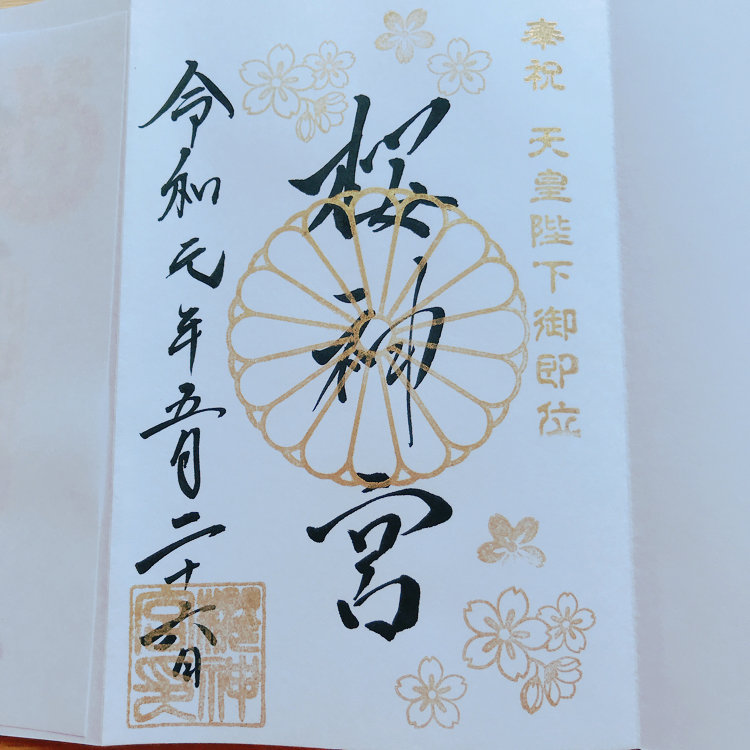 奉祝 天皇陛下御即位
桜神宮
令和元年五月二十六日
櫻神
宮印